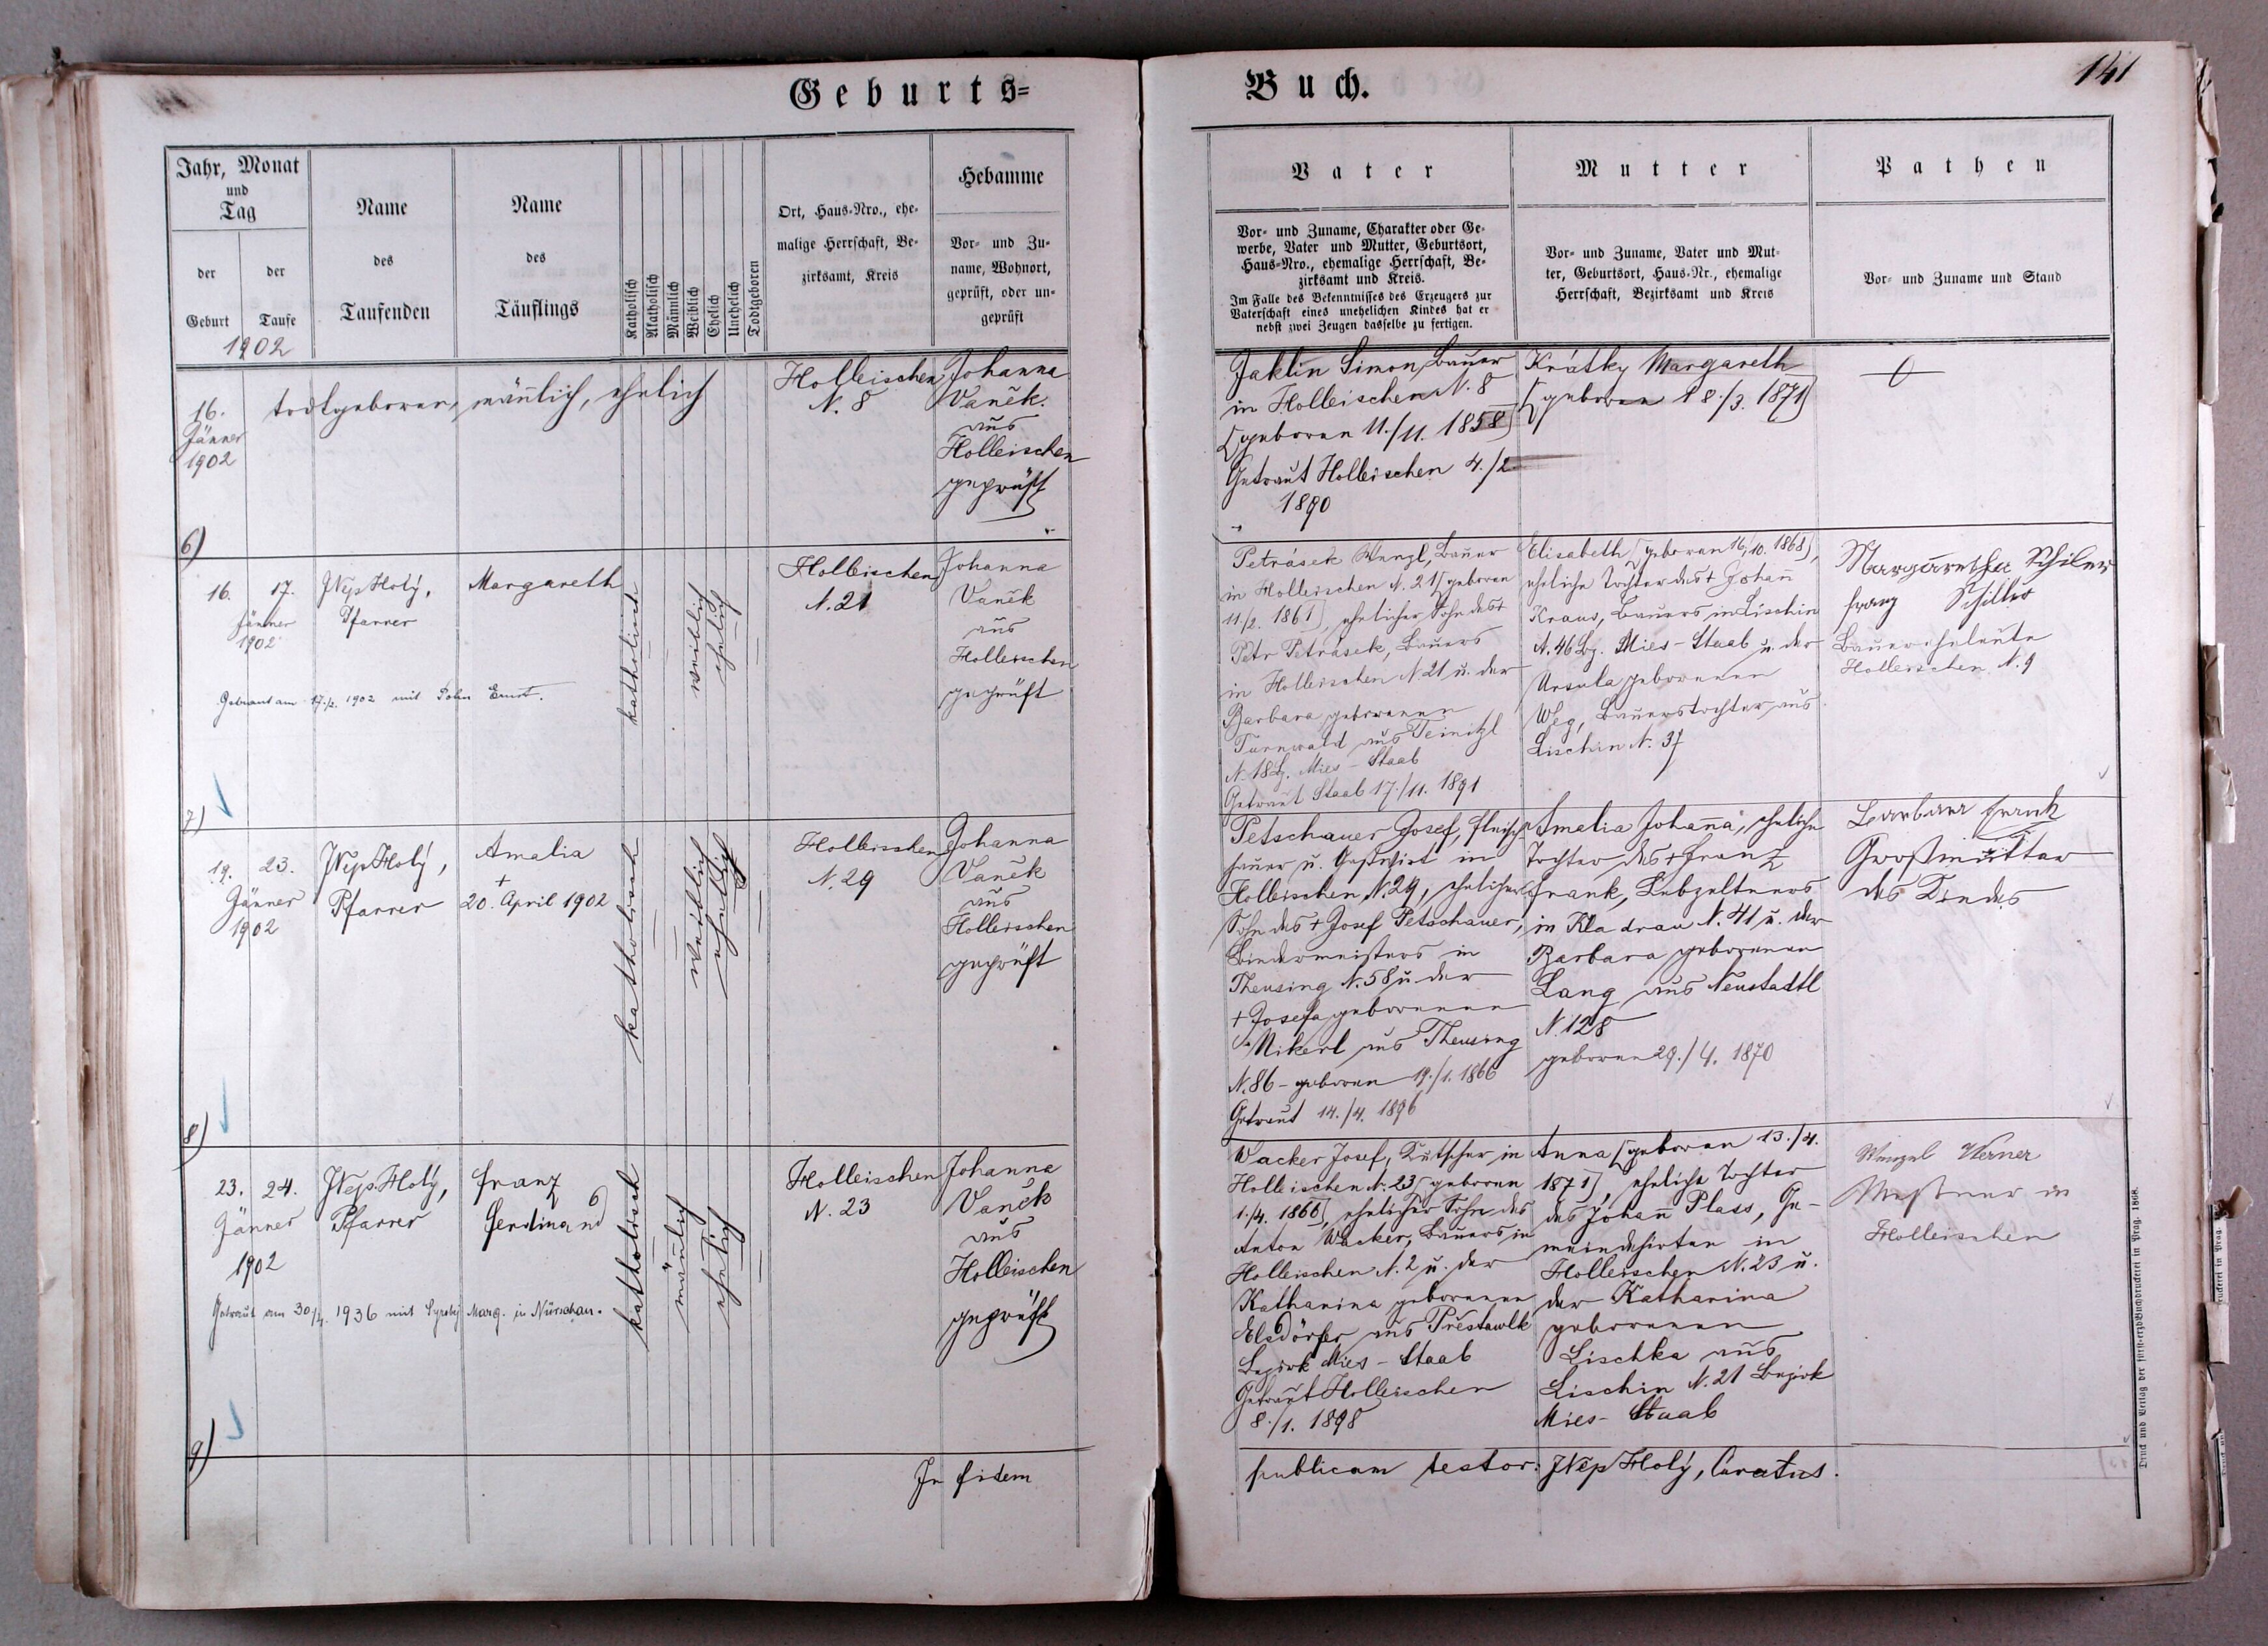 Geburts-
Jahr, Monat
und
Tag
der
Geburt
der
Taufe
1902
Name
des
Taufenden
Name
des
Täuflings
Katholisch
Akatholisch
Männlich
Weiblich
Ehelich
Unehelich
Todtgeboren
Ort, Haus-Nro., ehe-
malige Herrschaft, Be-
zirksamt, Kreis
Hebamme
Vor- und Zu-
name, Wohnort,
geprüft, oder un-
geprüft
16.
Jänner
1902
todtgeboren, männlich, ehelich
Holleischen
N. 8
Johanna
Vaněk
aus
Holleischen
geprüft
6)
16. 17.
Jänner
1902
JNep Holý,
Pfarrer
Margareth
katholisch
weiblich
ehelich
Holleischen
N. 21
Johanna
Vaněk
aus
Holleischen
geprüft
Getraut am 17./2. 1902 mit Ernst.
7)
19. 23.
Jänner
1902
JNep Holý,
Pfarrer
Amalia
+
20. April 1902
katholisch
weiblich
ehelich
Holleischen
N. 29
Johanna
Vaněk
aus
Holleischen
geprüft
8)
23. 24.
Jänner
1902
JNep. Holý,
Pfarrer
Franz
Ferdinand
katholisch
männlich
ehelich
Holleischen
N. 23
Johanna
Vaněk
aus
Holleischen
geprüft
Getraut am 30/4. 1936 mit Marg. in Nürschan.
9)
In fidem
Buch.
141
Vater
Vor- und Zuname, Charakter oder Ge-
werbe, Vater und Mutter, Geburtsort,
Haus-Nro., ehemalige Herrschaft, Be-
zirksamt und Kreis.
Im Falle des Bekenntnisses des Erzeugers zur
Vaterschaft eines unehelichen Kindes hat er
nebst zwei Zeugen dasselbe zu fertigen.
Mutter
Vor- und Zuname, Vater und Mut-
ter, Geburtsort, Haus-Nr., ehemalige
Herrschaft, Bezirksamt und Kreis
Pathen
Vor- und Zuname und Stand
Jaklin Simon, Bauer
in Holleischen N. 8
[geboren 11./11. 1858]
Getraut Holleischen 4./2.
1890
Krátky Margareth
[geboren 18./3. 1871]
Petrásek Wenzl, Bauer
in Holleischen N. 21 [geboren
11/2. 1861], ehelicher Sohn des +
Petr Petrásek, Bauers
in Holleischen N. 21 u. der
Barbara geborenen
Turnwald aus Teinitzl
N. 18 Bz. Mies-Staab
Getraut Staab 17./11. 1891
Elisabeth [geboren 16./10. 1868],
eheliche Tochter des + Johann
Kraus, Bauers in Lischin
N. 46 Bz. Mies-Staab u. der
Ursula geborenen
Weg, Bauerstochter aus
Lischin N. 37
Margaretha Schiler
Franz Schiller
Bauerseheleute
Holleischen N. 9
Petschauer Josef, Fleisch-
hauer u. Gastwirt in
Holleischen N. 29, ehelicher
Sohn des + Josef Petschauer,
Bindermeisters in
Theusing N. 58 u. der
+ Josefa geborenen
Nikerl aus Theusing
N. 86 - geboren 19./1. 1866
Getraut 14./4. 1896
Amalia Johanna, eheliche
Tochter des + Franz
Frank, Lebzeltners
in Kladrau N. 41 u. der
Barbara geborenen
Lang aus Neustadtl
N. 128
geboren 29./4. 1870
Barbara Frank
Großmutter
des Kindes
Wacker Josef, Kutscher in
Holleischen N. 23 [geboren
1./4. 1866], ehelicher Sohn des
Anton Wacker, Bauers in
Holleischen N. 2 u. der
Katharina geborenen
Elsdörfer aus Přestawlk
Bezirk Mies-Staab
Getraut Holleischen
8./1. 1898
Anna [geboren 13./4.
1871], eheliche Tochter
des Johann Plass, Ge-
meindehirten in
Holleischen N. 23 u.
der Katharina
geborenen
Lischka aus
Lischin N. 21 Bezirk
Mies-Staab
Wenzel Werner
Meßner in
Holleischen
publicam testor: JNep Holý, Curatus.
Druck und Verlag der fürst-erzb Buchdruckerei in Prag. 1868.